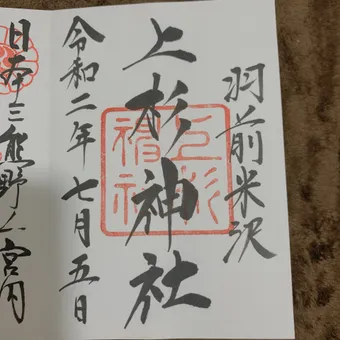 羽前米沢
上杉神社
上杉神社
令和二年七月五日
日本三熊野